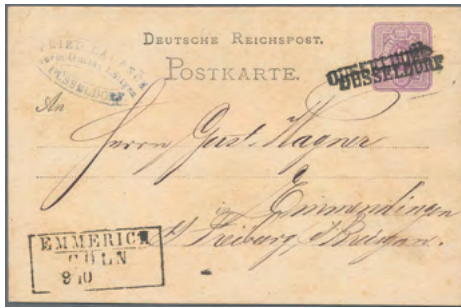 DEUTSCHE REICHSPOST.
POSTKARTE.
DÜSSELDORF
DÜSSELDORF
DÜSSELDORF
An
Herrn Gust. Wagner
in
Emmendingen
b/ Freiburg i/Breisgau.
EMMERICH
CÖLN
9 10